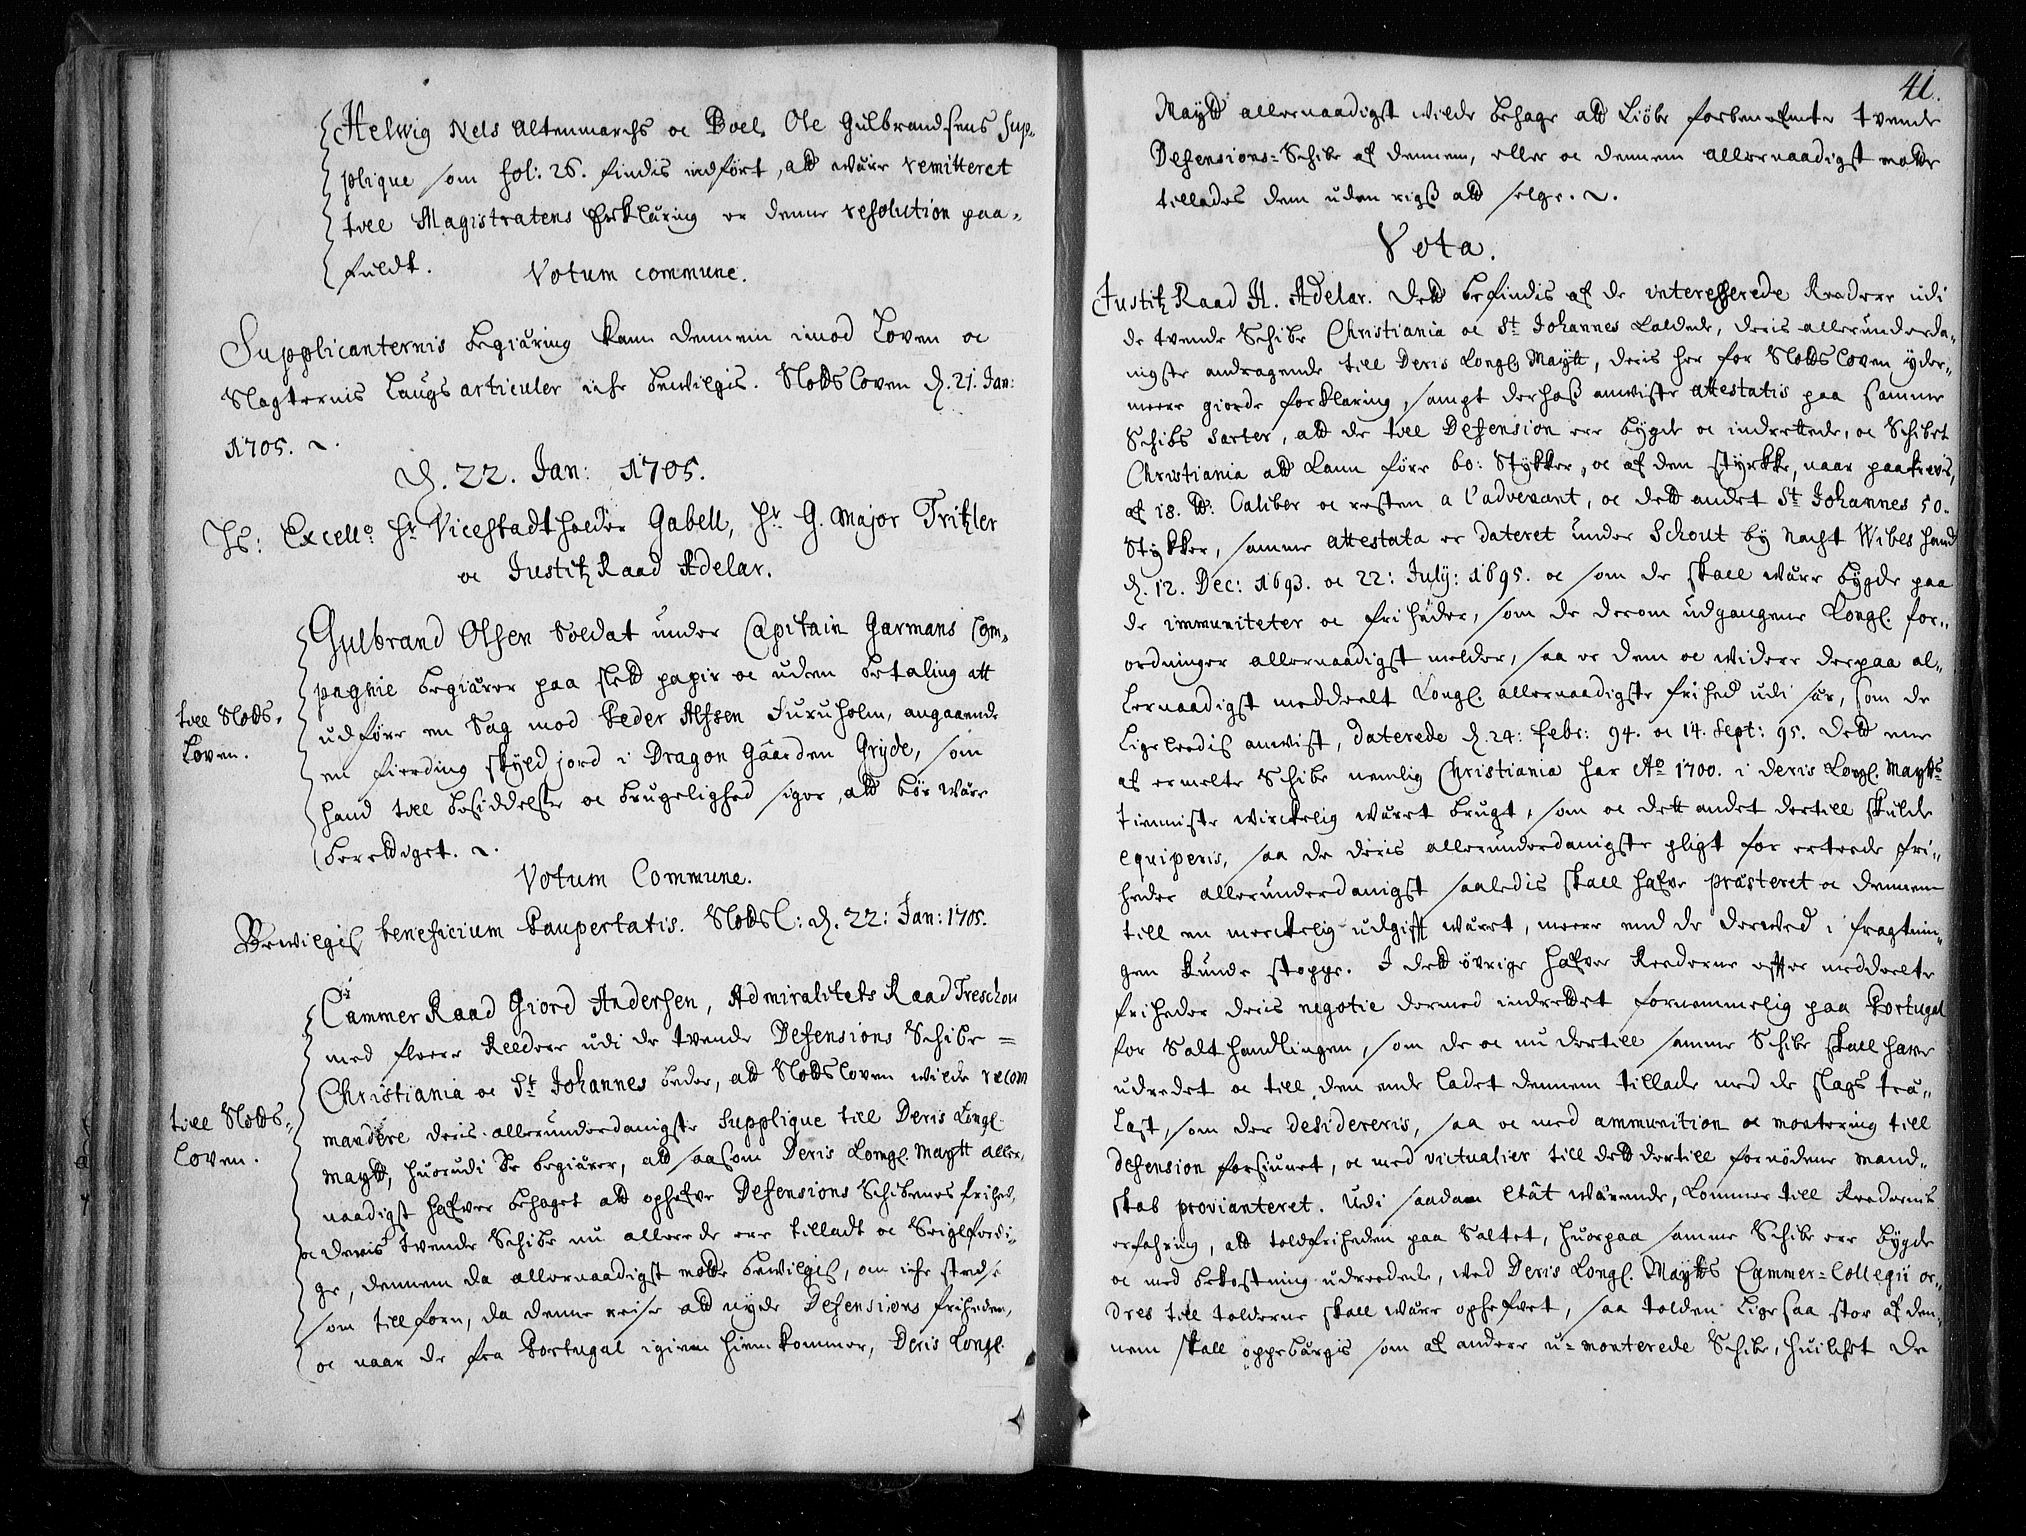 Helwig Nels Altenmarchs oc Boel Ole Gulbrandsens Sup-
plique som fol: 26. findis indført, att wære remitteret
till Magistratens Erklæring er denne resolution paa-
fuldt.
Votum commune.
Supplicanternis begiæring kand dennem imod Loven oc
Slagternis Laugs articuler iche bewilgis. Slottsloven d. 21. Jan:
1705.
d. 22. Jan: 1705.
Hs: Excell. Hr Vicestadtholder Gabell, Hr G. Major Tritzler
oc Justitz Raad Adelar.
Gulbrand Olsen Soldat under Capitain Garmans Com-
pagnie begiærer paa slett papir oc uden betaling att
udføre en Sag mod Peder Alfsen Furuholm, angaaende
till Slotts-
Loven.
en fierding skyld jord i Dragon Gaarden Gryde, som
hand till besiddelse oc brugelighed siger, att bør wære
berettiget.
Votum Commune.
Bewilgis beneficium Paupertatis. Slottsl: d. 22: Jan: 1705.
Cammer Raad Giord Andersen, Admiralitets Raad Treschou
med fleere Reedere udi de tvende Defensions Schibe
Christiania oc St Johannes beder, att Slottsloven wilde recom
mandere deris allerunderdanigste Supplique till Deris Kongl.
till Slotts-
Loven.
Maytt, huorudi de begiærer, att saasom Deris Kongl. Maytt aller-
naadigst hafver behaget att ophefve Defensions Schibenes frihed,
oc deris tvende Schibe nu allerede ere tilladt oc Seiglferdi-
ge, dennem da allernaadigst motte bewilgis, om iche stedse
som tillforn, da denne reise att nyde Defensions friheden,
oc naar de fra Portugal igien hiemkommer, Deris Kongl.
41.
Maytt allernaadigst wilde behage att Kiøbe forbenefnte tvende
Defensions-Schibe af dennem, eller oc dennem allernaadigst motte
tillades dem uden rigs att selge.
Vota.
Justitz Raad H. Adelar. Dett befindis af de interesserede Reedere udi
de tvende Schibe Christiania oc St Johannes Kaldede, deris allerunderda-
nigste andragende till Deris Kongl. Maytt, deris her for Slottsloven yder-
meere giorde forklaring, sampt derhos anwiste attestatis paa samme
Schibs Carter, att de till Defension ere bygte oc indrettede, oc Schibet
Christiania att Kann føre 60: Stykker, oc af den styrkke, naar paakrevis,
af 18. lb: Caliber oc resten a l'advenant, oc dett andet St Johannes 50.
Stykker, samme attestata er dateret under Schout by Nacht Wibes hand
d. 12. Dec: 1693. oc 22: July: 1695. oc som de skall wære bygde paa
de immuniteter oc friheder, som de derom udgangene Kongl. for-
ordninger allernaadigst melder, saa er dem oc widere derpaa al-
lernaadigst meddeelt Kongl. allernaadigste frihed udi sær, som de
ligeleedis anwist, daterede d. 24: Febr: 94. oc 14. Sept: 95. Dett ene
af ermelte Schibe nemlig Christiania har Ao 1700. i Deris Kongl. Maytts
tienniste wirckelig wæret brugt, som oc dett andet dertill skulde
equiperis, saa de deris allerunderdanigste pligt for erteede fri-
heder allerunderdanigst saaledis skall hafve præsteret oc dennem
till en merckelig udgift wæret, meere end de derwed i fragtnin-
gen kunde stoppe. I dett øvrige hafver Reederne efter meddeelte
friheder deris negotie dermed indrettet fornemmelig paa Portugal
for Salt handlingen, som de oc nu dertill samme Schibe skall have
udredet oc till den ende ladet dennem tillade med de slags træ-
Last, som der desidereris, saa oc med ammunition oc montering till
defension forsiunet, oc med victualier till dett dertill fornødene mand-
skab provianteret. Udi saadan Etât wærende, Kommer till Reedernis
erfahring, att toldfriheden paa Saltet, huorpaa samme Schibe ere bygde
oc med bekostning udreedede, wed Deris Kongl. Maytts Cammer-Collegii or-
dres till tolderne skall wære ophefvet, saa tolden lige saa stor af den-
nem skall oppebærgis som af andere u-monterede Schibe, huilchet de